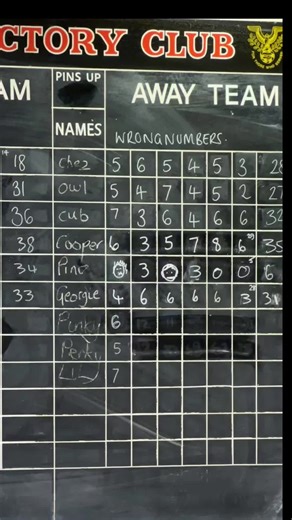 CTORY CLUB
AM PINS UP AWAY TEAM
NAMES WRONGNUMBERS.
18 Chez 5 6 5 4 5 3 28
31 Owl 5 4 7 4 5 2 27
36 Cub 7 3 6 4 6 6 32
38 Cooper 6 3 5 7 8 6 35
34 3 3 0 0 6
33 Georgie 4 6 6 6 6 3 31
Punky 6
Perky 5
7